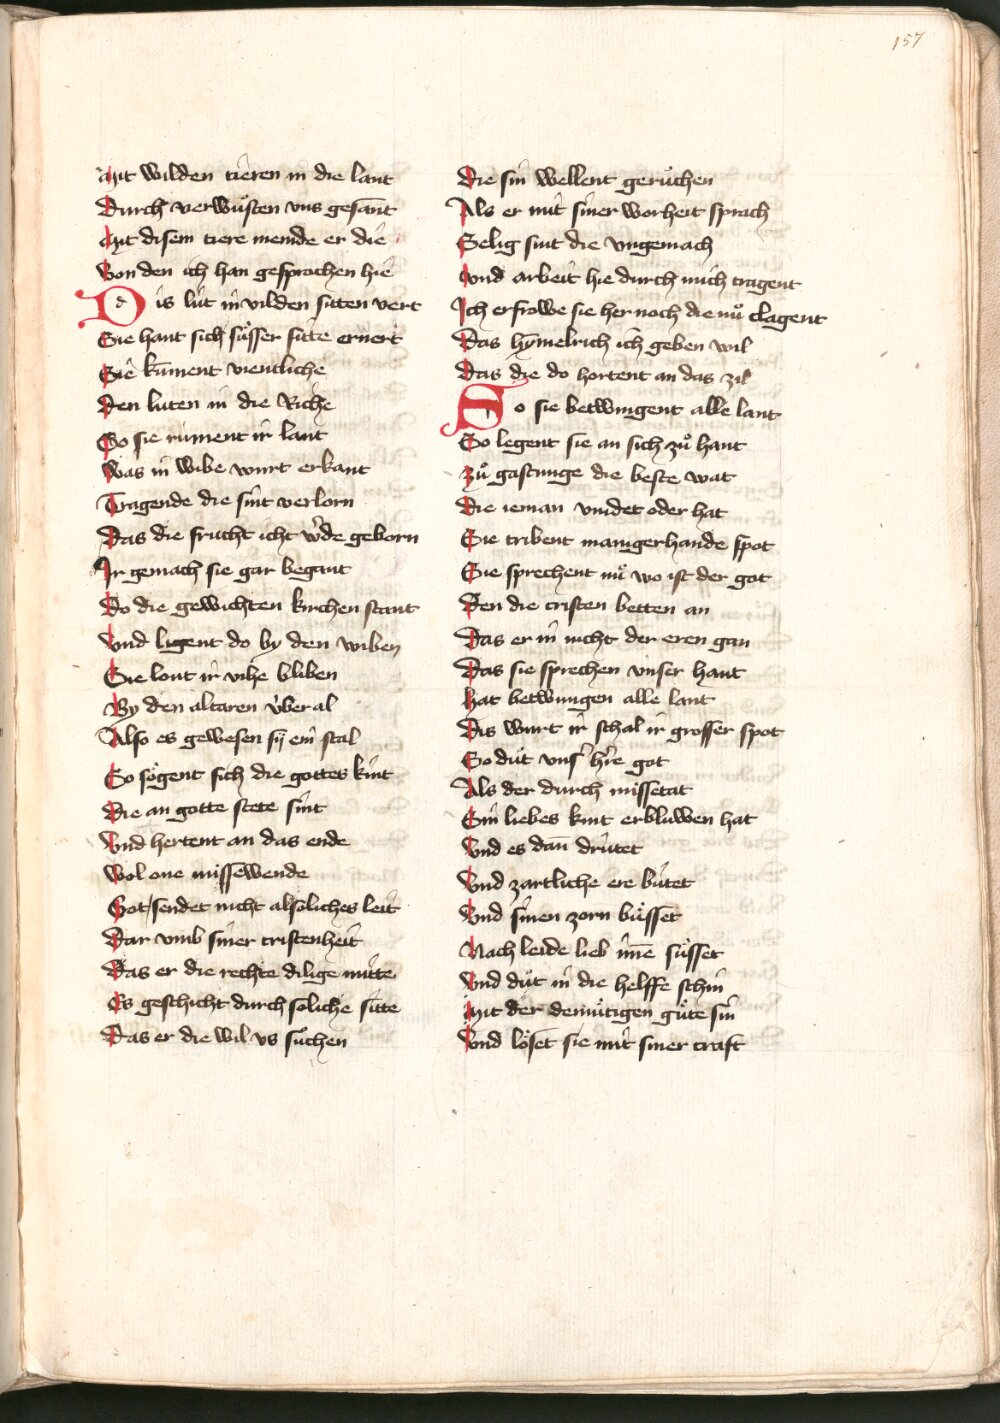 157
Mit wilden tieren in die lant
Durch verwuͤsten vns gesant
Mit disem tiere meinde er die
Von den ich han gesprochen hie
Dis lút in vilden sitten vert
Sie hant sich suͤsser sitte ernert
Sie kūment vientliche
Den luten in die Riche
So sie rument ir lant
Was in wibe wurt erkant
Tragende die sint verlorn
Das die frucht icht wͤde geborn
Ir gemach sie gar begant
Do die gewichten kirchen stant
Vnd ligent do by den wiben
Sie lont ir vihe bliben
By den altaren v́ber al
Also es gewesen sy ein stal
So soͤgent sich die gottes kint
Die an gotte stete sint
Vnd hertent an das ende
Wol one missewende
Got sendet nicht alsoliches leit
Dar vmb siner cristenheit
Das er die rechte dilige mitte
Es geschicht durch soliche sitte
Das er die wil vs suͤchen
Die sin wellent geruͦchen
Als er mit siner worheit sprach
Selig sint die vngemach
Vnd arbeit hie durch mich tragent
Ich erfrowe sie her noch die nuͦ clagent
Das hymelrich ich geben wil
Das die do hortent an das zil
So sie betwingent alle lant
So legent sie an sich zuͦ hant
Zuͦ gastunge die beste wat
Die ieman vindet oder hat
Sie tribent manigerhande spot
Sie sprechent nuͦ wo ist der got
Den die cristen betten an
Das er in nicht der eren gan
Das sie sprechen vnser hant
hat betwungen alle lant
Dis wurt ir schal ir grosser spot
So duͦt vnsͤ hͤre got
Als der durch missetat
Sin liebes kint erbluwen hat
Vnd es dan̄ drútet
Vnd zartliche ere bútet
Vnd sinen zorn buͤsset
Nach leide lieb im̄e suͤsset
Vnd duͦt in die helffe schin
Mit der demuͤtigen guͤte sin
Vnd loͤset sie mit siner craft